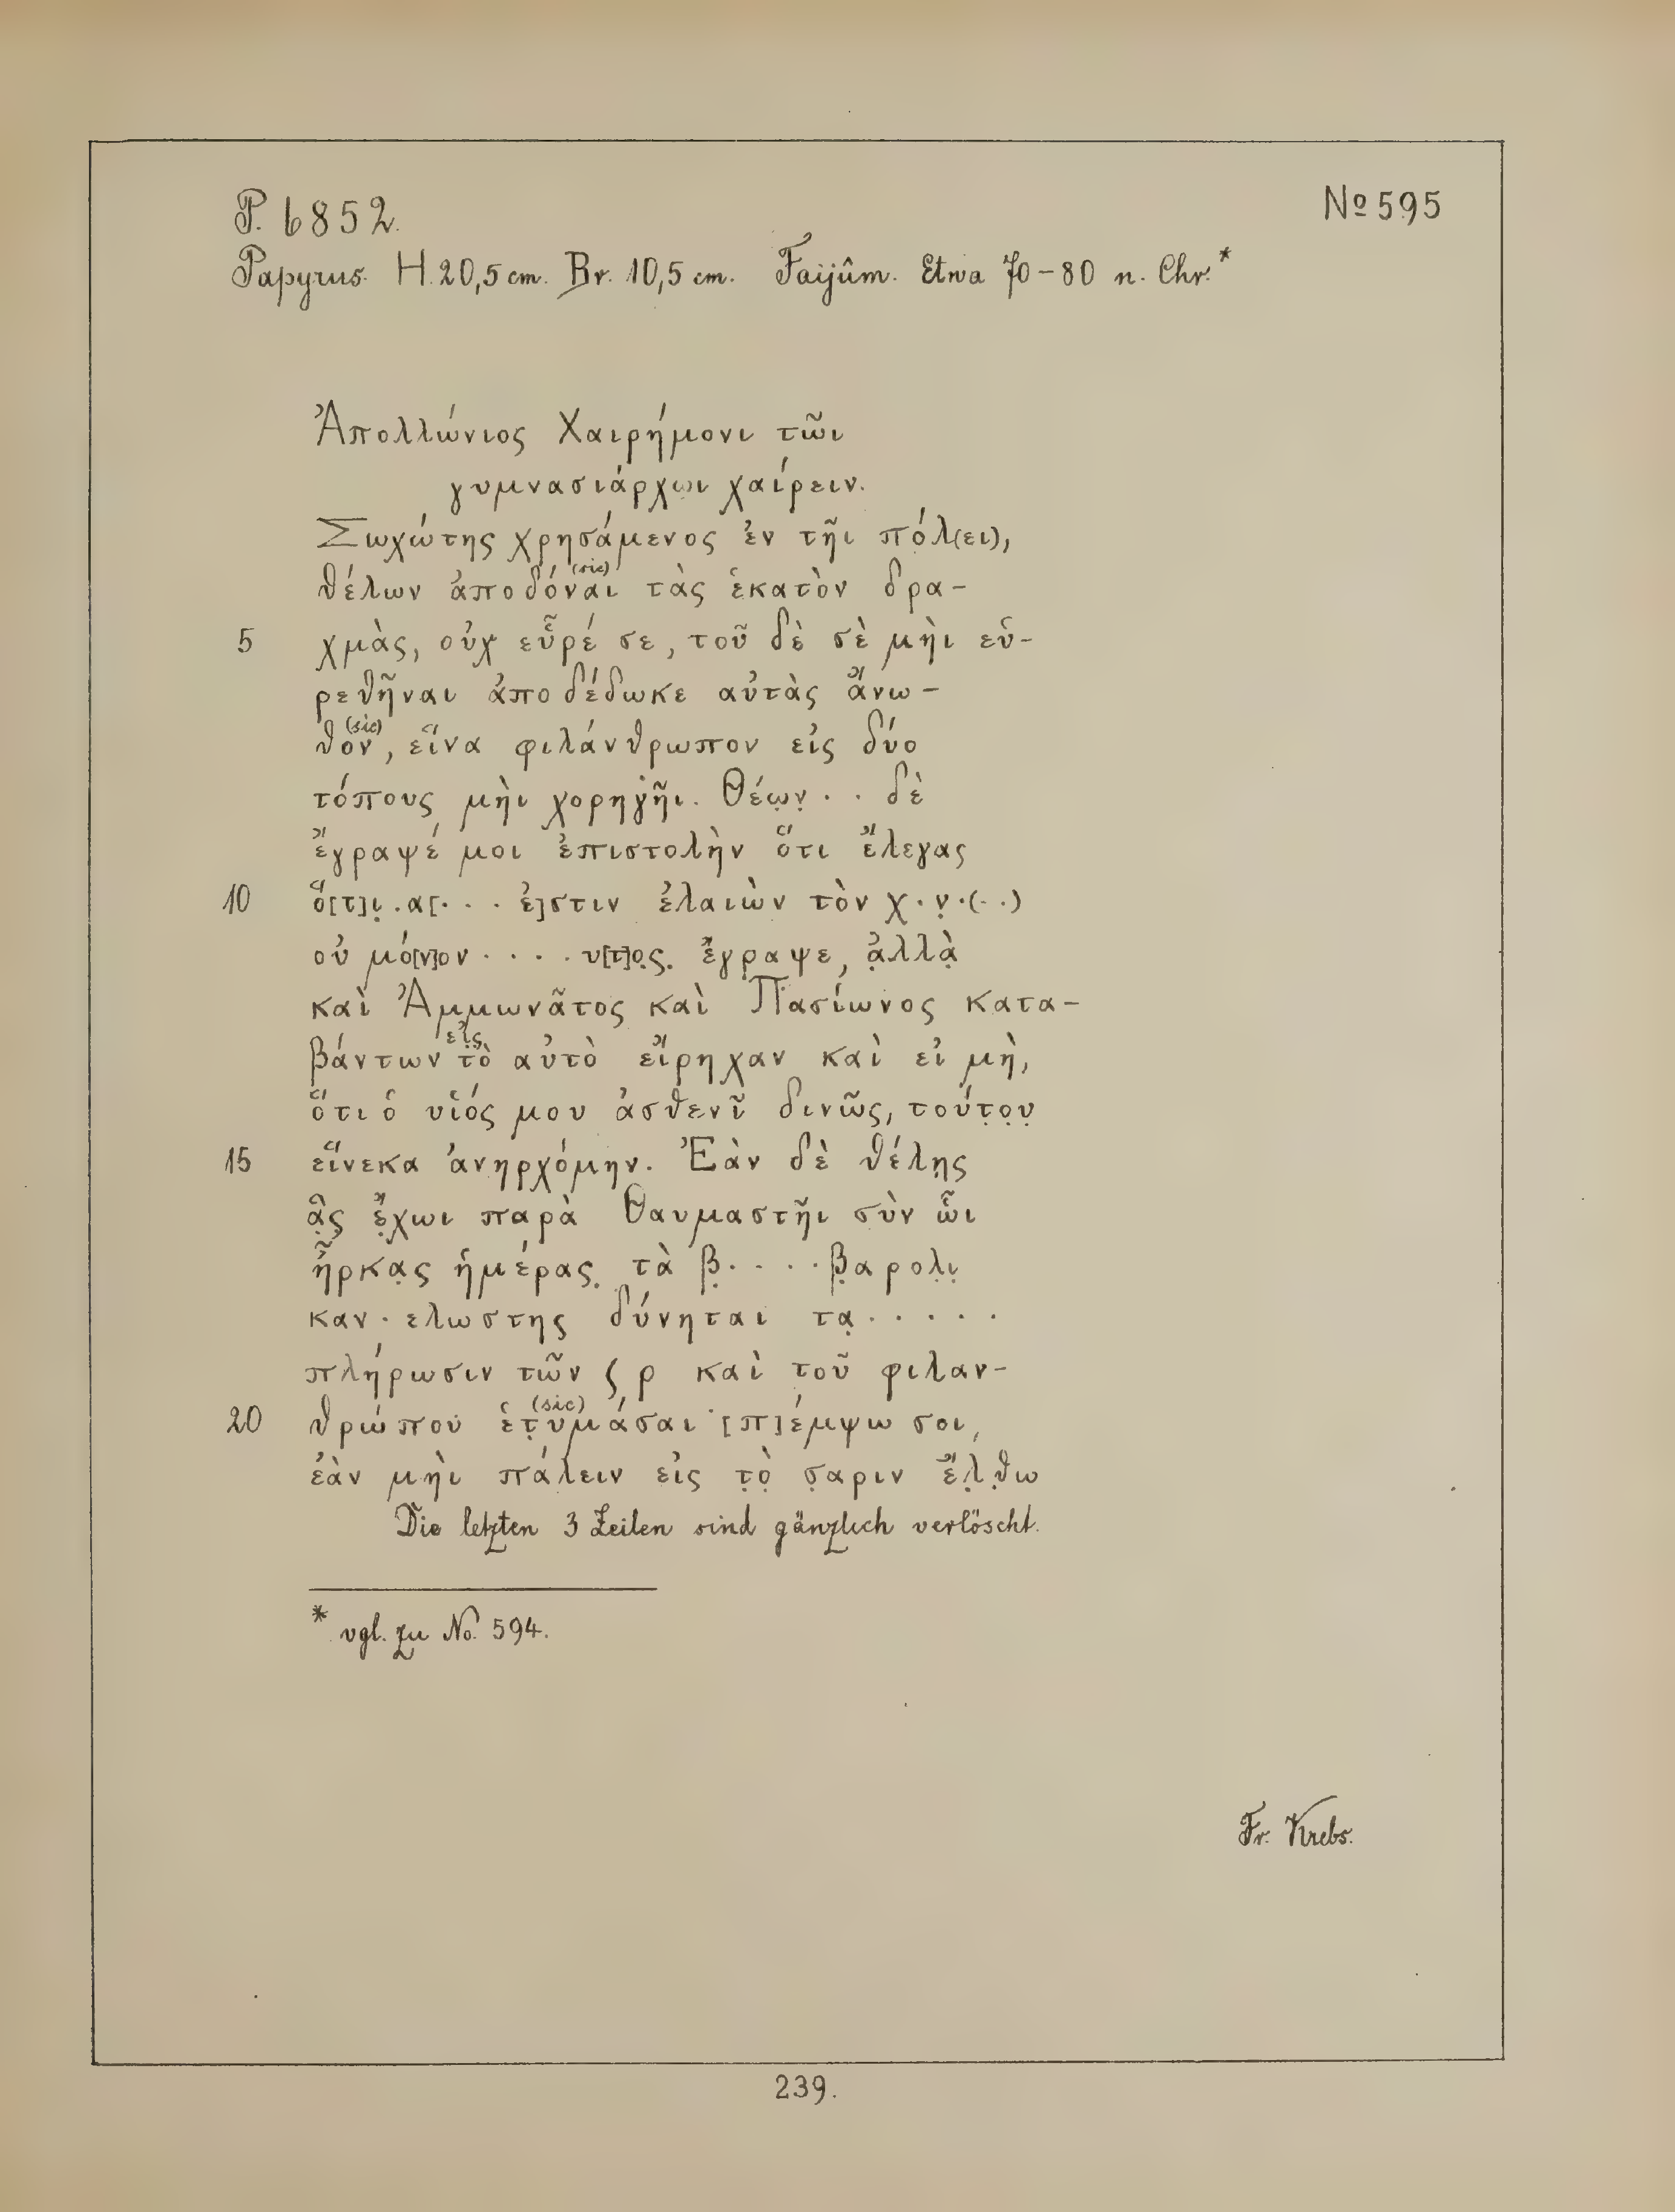 P. 6852.
No 595
Papyrus. H. 20,5 cm. Br. 10,5 cm. Faijûm. Etwa 70–80 n. Chr.*
Ἀπολλώνιος Χαιρήμονι τῶι
γυμνασιάρχωι χαίρειν.
Σωχώτης χρησάμενος ἐν τῆι πόλ(ει),
θέλων ἀποδόναι (sic) τὰς ἑκατὸν δρα–
5 χμὰς, οὐχ εὗρέ σε, τοῦ δὲ σὲ μὴι εὑ–
ρεθῆναι ἀποδέδωκε αὐτὰς ἄνω–
θον (sic), εἵνα φιλάνθρωπον εἰς δύο
τόπους μὴι χορηγῆι. Θέω̣ν̣ . . δὲ
ἔγραψέ μοι ἐπιστολὴν ὅτι ἔλεγας
10 ὅ[τ]ι̣ . α[. . . ἐ]στιν ἐλαιὼν τὸν χ . ν̣ . (. .)
οὐ μό[ν]ον . . . . υ[τ]ο̣ς̣. ἔγραψε, ἀ̣λλὰ̣
καὶ Ἀμμωνᾶτος καὶ Πασίωνος κατα–
βάντων εἰ̣ς̣ τὸ αὐτὸ εἴρηχαν καὶ εἰ μὴ,
ὅτι ὁ υἱός μου ἀσθενῖ δινῶς, τούτ̣ο̣υ̣
15 εἵνεκα ἀνηρχόμην. Ἐὰν δὲ θέλη̣ς
ἃ̣ς̣ ἔ̣χωι παρὰ Θαυμαστῆι σὺν ὧι
ἦρκα̣ς ἡμέρας̣ τὰ β̣ . . . . β̣αρολ̣ι̣
καν . ελωστης δύνηται τα̣ . . . . .
πλήρωσιν τῶν ς ρ καὶ τοῦ φιλαν–
20 θρώπου ἑτ̣υμάσαι (sic) [π]έμψω σοι,
ἐὰν μὴι πάλειν εἰς τ̣ὸ̣ σ̣αριν ἔ̣λ̣θω
Die letzten 3 Zeilen sind gänzlich verlöscht.
* vgl. zu No. 594.
Fr. Krebs.
239.